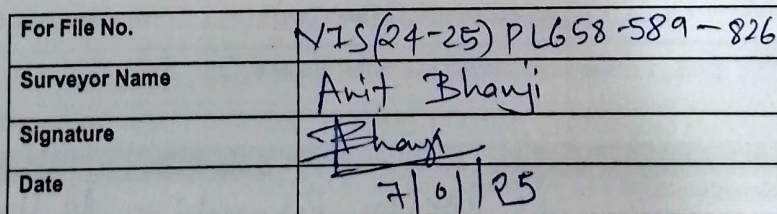 For File No. VIS(24-25) PL658-589-826
Surveyor Name Anit Bhanji
Signature Bhanji
Date 7/01/25